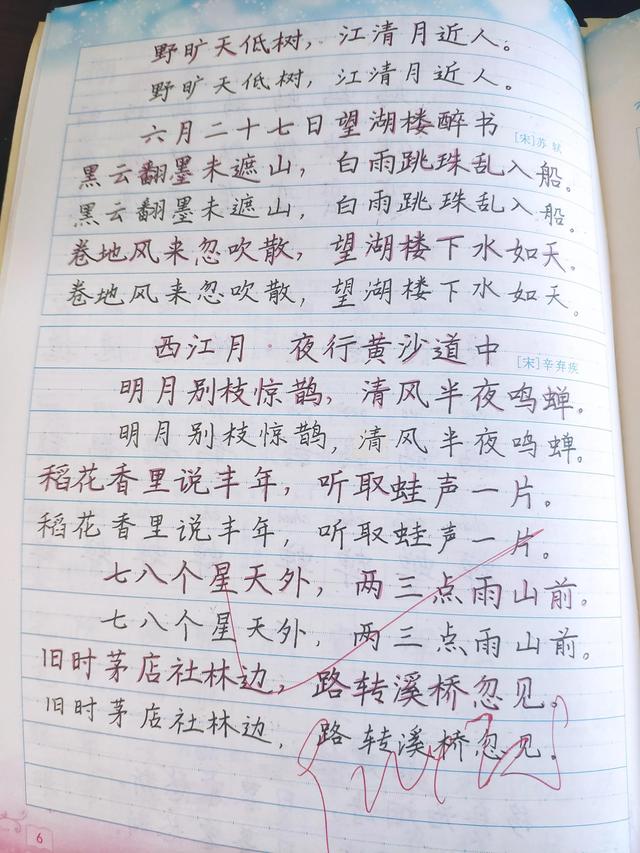 野旷天低树，江清月近人。
野旷天低树，江清月近人。
六月二十七日望湖楼醉书
[宋]苏轼
黑云翻墨未遮山，白雨跳珠乱入船。
黑云翻墨未遮山，白雨跳珠乱入船。
卷地风来忽吹散，望湖楼下水如天。
卷地风来忽吹散，望湖楼下水如天。
西江月·夜行黄沙道中
[宋]辛弃疾
明月别枝惊鹊，清风半夜鸣蝉。
明月别枝惊鹊，清风半夜鸣蝉。
稻花香里说丰年，听取蛙声一片。
稻花香里说丰年，听取蛙声一片。
七八个星天外，两三点雨山前。
七八个星天外，两三点雨山前。
旧时茅店社林边，路转溪桥忽见。
旧时茅店社林边，路转溪桥忽见。
6